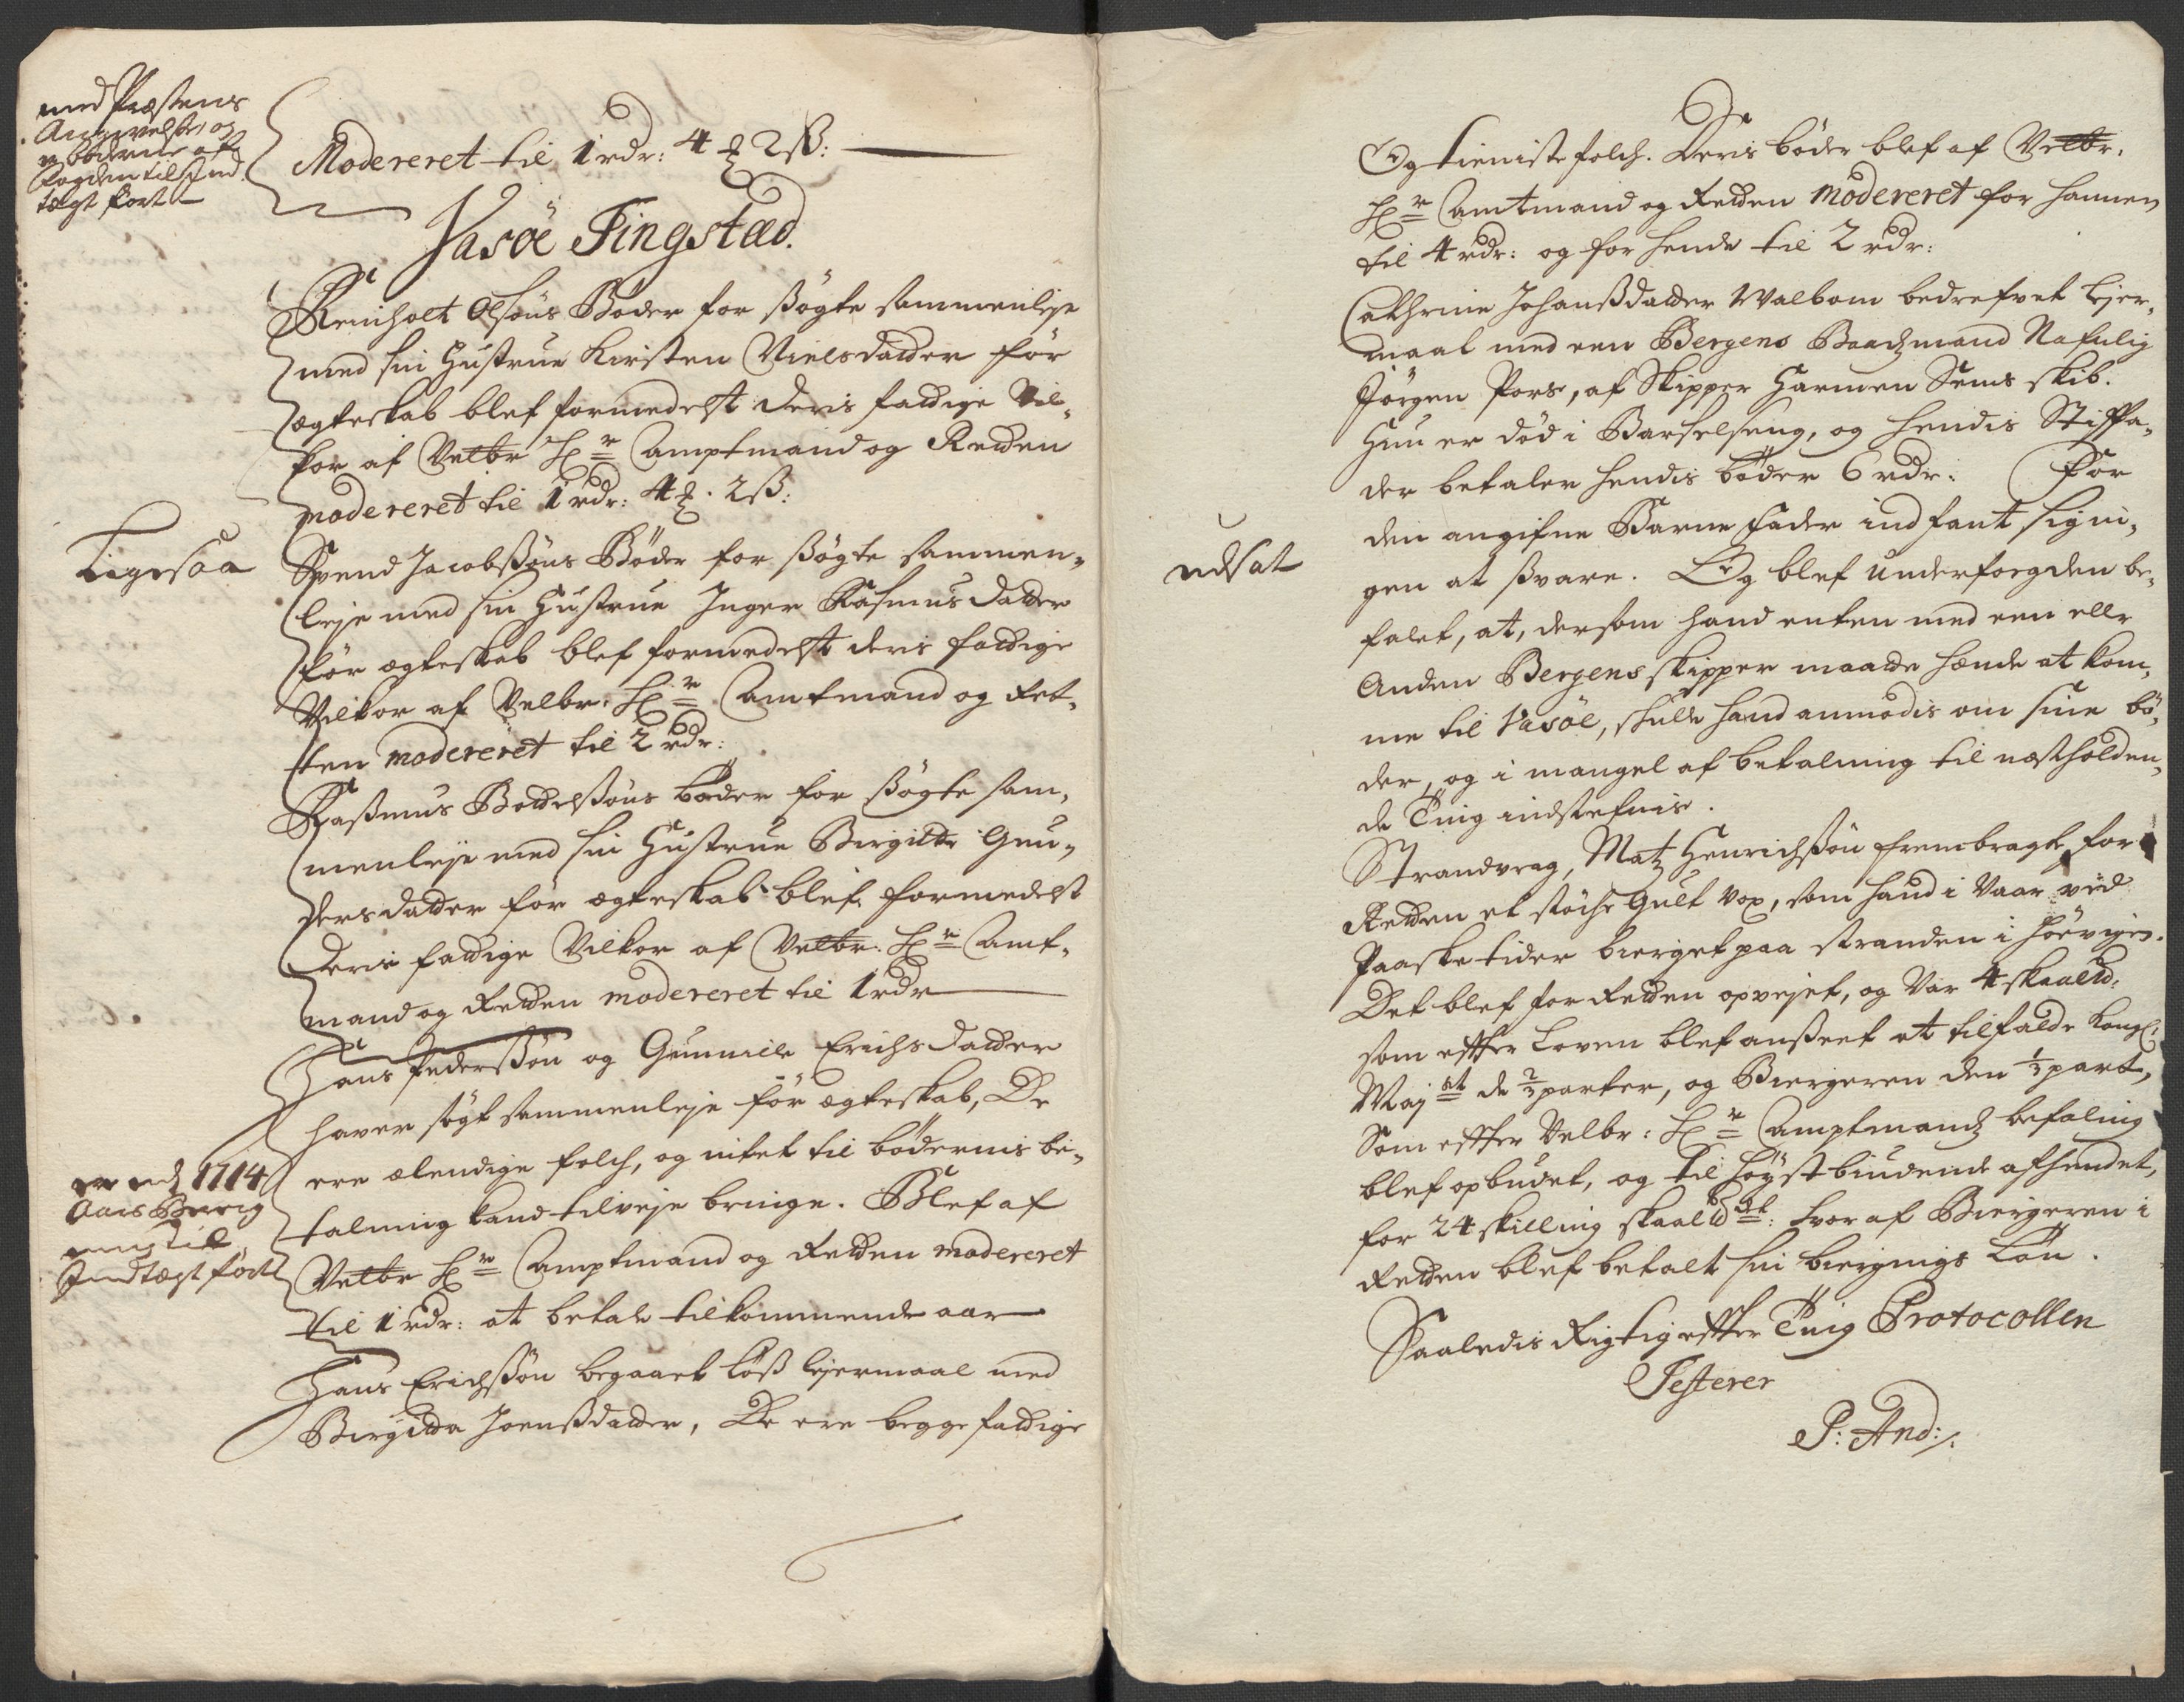 med Præstens
Angivelse, og
er bøderne af
fogden til Ind
tægt ført
Modereret til 1 rdr: 4 ₰ 2 ß:
Vasöe Tingstæd.
Reinholt Olsöns Bøder for ßøgte sammenleje
med sin Hustrue Kirsten Nielsdatter før
ægteskab blef formedelst deris fattige Vil-
kor af Velbr Hr Amptmand og Retten
modereret til 1 rdr: 4 ₰. 2 ß:
Ligesaa
Svend Jacobßöns Bøder for ßøgte sammen-
leje med sin Hustrue Inger Rasmusdatter
før ægteskab blef formedelst deris fattige
Vilkor af Velbr: Hr Amtmand og Ret-
ten modereret til 2 rdr:
Raßmus Bottelßöns bøder for ßøgte sam-
menleje med sin Hustrue Birgitte Gun-
dersdatter før ægteskab blef formedelst
deris fattige Vilkor af Velbr: Hr Amt-
mand og Retten modereret til 1 rdr
Hans Pederßön og Gunnile Erichsdatter
haver søgt sammenleje før ægteskab, De
ere elendige folch, og intet til bødernis be-
talning kand tilveje bringe. Blef af
Velbr Hr Amptmand og Retten modereret
til 1 rdr: at betale tilkommende aar
er udj 1714
Aars
til
Indtægt ført
Hans Erichßön begaaet løß lejermaal med
Birgitta Joenßdatter, De ere begge fattige
Og tieniste folch. Deris bøder blef af Velbr.
Hr Amtmand og Retten modereret for hannem
til 4 rdr: og for hende til 2 rdr:
Cathrine Johanßdatter Walbom bedrefvet Lejer-
maal med een Bergens Baadzmand Nafnlig
Jörgen Pors, af Skipper Harmen Sems skib.
Hun er død i Barselseng, og hendis Stiffa-
der betaler hendis bøder 6 rdr: For
den angifne Barne fader indfant sig in-
gen at ßvare. Og blef underfogden be-
falet, at, dersom hand enten med een eller
Anden Bergens skipper maatte hænde at kom-
me til Vasöe, skulle hand anmodis om sine bø-
der, og i mangel af betalning til næstholden-
de Ting indstefnis.
udsat
Strandvrag, Matz Henrichßön frembragte for
Retten et støche Gult Vox, som hand i Vaar ved
Paaske tider bierget paa stranden i Höevigen.
Det blef for Retten opvejet, og Var 4 skaalld:
som effter Loven blef anßeet at tilfalde Kongl:
Majst de 2/3 parter, og Biergeren den 1/3 part,
Som effter Velbr: Hr Amptmandz befaling
blef opbudet, og til høystbiudende afhendet,
for 24 skilling skaalldt: hvor af Biergeren i
Retten blef betalt sin biergnings Løn.
Saaledis Rigtig effter Ting Protocollen
Testerer
P: And:/.